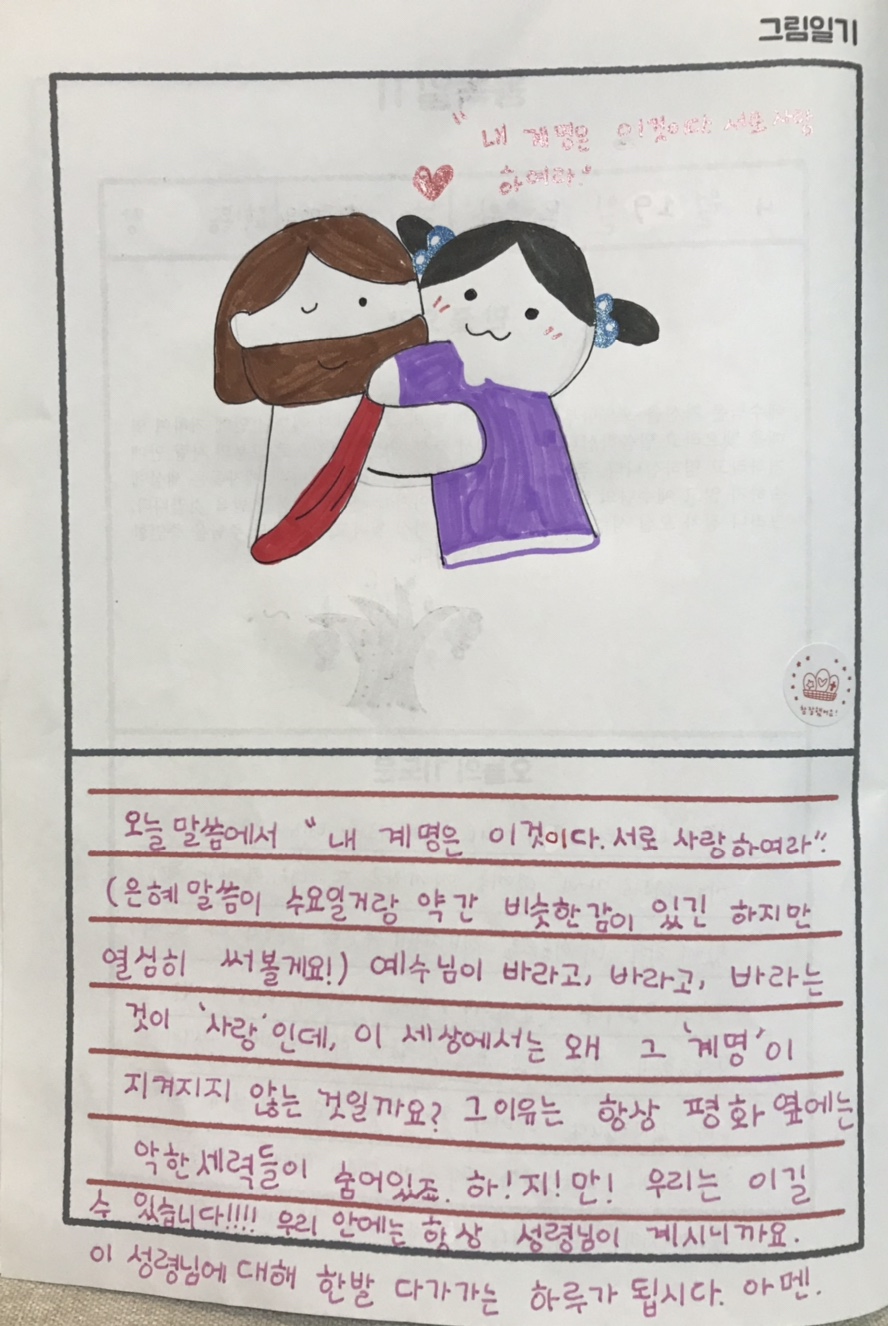 그림일기
"내 계명은 이것이다 서로 사랑
하여라"
참 잘했어요!
오늘 말씀에서 "내 계명은 이것이다. 서로 사랑하여라".
(은혜 말씀이 수요일거랑 약간 비슷한감이 있긴 하지만
열심히 써볼게요!) 예수님이 바라고, 바라고, 바라는
것이 '사랑'인데, 이 세상에서는 왜 그 '계명'이
지켜지지 않는 것일까요? 그 이유는 항상 평화 옆에는
악한 세력들이 숨어있죠. 하!지!만! 우리는 이길
수 있습니다!!!! 우리 안에는 항상 성령님이 계시니까요.
이 성령님에 대해 한발 다가가는 하루가 됩시다. 아멘.